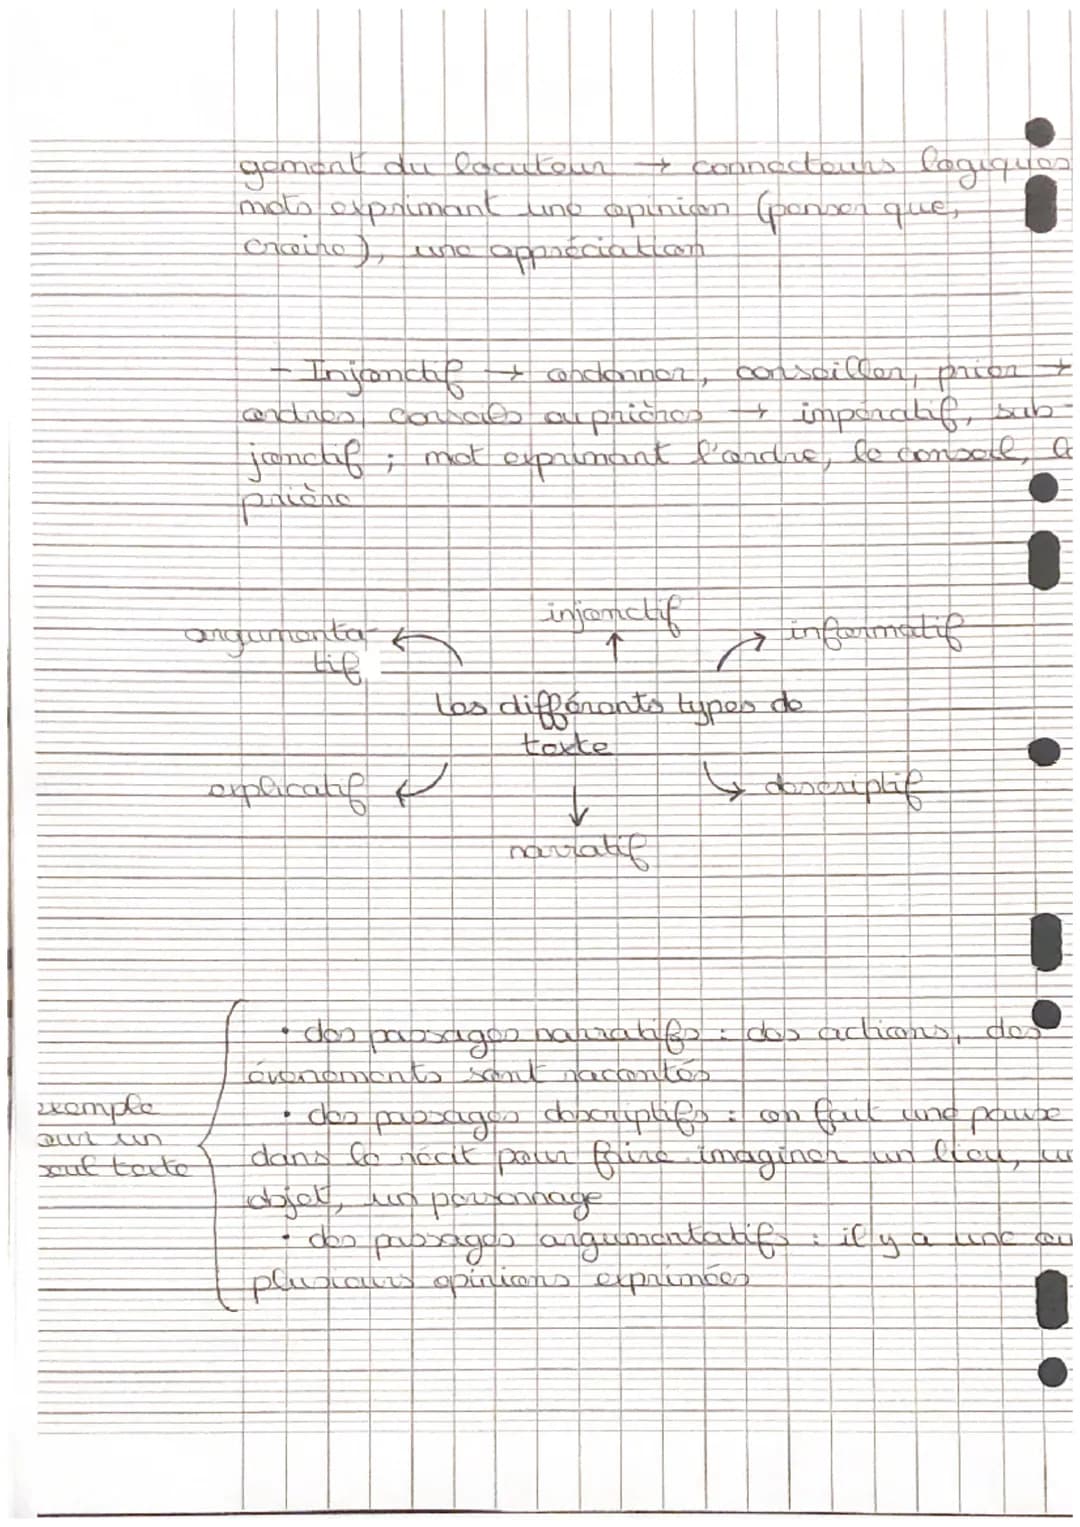 gement du locuteur → connecteurs logiques
mots exprimant une opinion (penser que,
croire), une appréciation
- Injonctif → ordonner, conseiller, prier →
ordres, conseils ou prières → impératif, sub-
jonctif ; mot exprimant l'ordre, le conseil, la
prière
injonctif
argumenta-
tif
informatif
Les différents types de
texte
explicatif
descriptif
narratif
• des passages narratifs : des actions, des
évenements sont racontés
• des passages descriptifs : on fait une pause
dans le récit pour faire imaginer un lieu, un
objet, un personnage
• des passages argumentatifs : il y a une ou
plusieurs opinions exprimées
exemple
sur un
seul texte